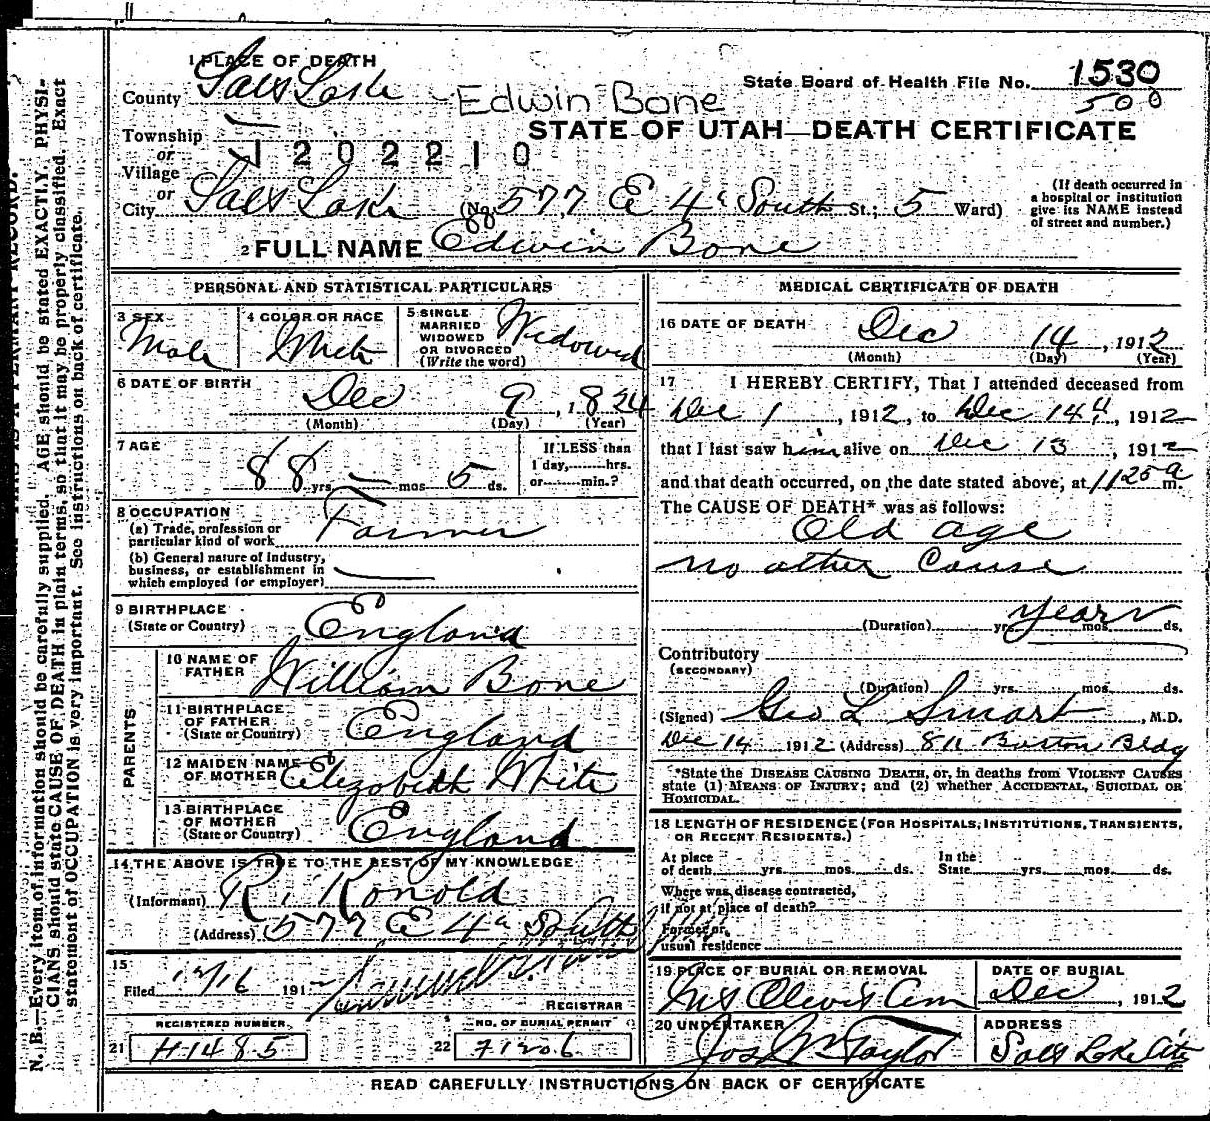 1 PLACE OF DEATH
County Salt Lake
Edwin Bone
State Board of Health File No. 1530
500
Township
or
Village
1202210
STATE OF UTAH—DEATH CERTIFICATE
or
City Salt Lake (No. 577 E 4th South St.; 5 Ward)
(If death occurred in
a hospital or institution
give its NAME instead
of street and number.)
2 FULL NAME Edwin Bone
PERSONAL AND STATISTICAL PARTICULARS
3 SEX
Male
4 COLOR OR RACE
White
5 SINGLE
MARRIED
WIDOWED
OR DIVORCED
(Write the word)
Widowed
6 DATE OF BIRTH
Dec 9, 1824
(Month) (Day) (Year)
7 AGE
88 yrs. — mos. 5 ds.
If LESS than
1 day, hrs.
or min.?
8 OCCUPATION
(a) Trade, profession or
particular kind of work Farmer
(b) General nature of Industry,
business, or establishment in
which employed (or employer)
9 BIRTHPLACE
(State or Country) England
PARENTS
10 NAME OF
FATHER William Bone
11 BIRTHPLACE
OF FATHER
(State or Country) England
12 MAIDEN NAME
OF MOTHER Elizabeth White
13 BIRTHPLACE
OF MOTHER
(State or Country) England
14 THE ABOVE IS TRUE TO THE BEST OF MY KNOWLEDGE
(Informant) R. Ronold
(Address) 577 E 4th South
15
Filed 12/16 191
REGISTRAR
REGISTERED NUMBER
21 H1485
NO. OF BURIAL PERMIT
22 71206
MEDICAL CERTIFICATE OF DEATH
16 DATE OF DEATH
Dec 14, 1912
(Month) (Day) (Year)
17 I HEREBY CERTIFY, That I attended deceased from
Dec 1, 1912, to Dec 14th, 1912
that I last saw him alive on Dec 13, 1912
and that death occurred, on the date stated above, at 1125 a m.
The CAUSE OF DEATH* was as follows:
Old age
no other Cause
years
(Duration) yrs. mos. ds.
Contributory
(SECONDARY)
(Duration) yrs. mos. ds.
(Signed) Geo L Smart, M.D.
Dec 14 1912 (Address) 811 Boston Bldg
*State the DISEASE CAUSING DEATH, or, in deaths from VIOLENT CAUSES
state (1) MEANS OF INJURY; and (2) whether ACCIDENTAL, SUICIDAL OR
HOMICIDAL.
18 LENGTH OF RESIDENCE (FOR HOSPITALS, INSTITUTIONS, TRANSIENTS,
OR RECENT RESIDENTS.)
At place
of death yrs. mos. ds.
In the
State yrs. mos. ds.
Where was disease contracted,
if not at place of death?
Former or
usual residence
19 PLACE OF BURIAL OR REMOVAL
Mt Olivet Cem
DATE OF BURIAL
Dec, 1912
20 UNDERTAKER
Jos Wm Taylor
ADDRESS
Salt Lake City
READ CAREFULLY INSTRUCTIONS ON BACK OF CERTIFICATE
N. B.—Every item of information should be carefully supplied. AGE should be stated EXACTLY. PHYSI-
CIANS should state CAUSE OF DEATH in plain terms, so that it may be properly classified. Exact
statement of OCCUPATION is very important. See instructions on back of certificate.